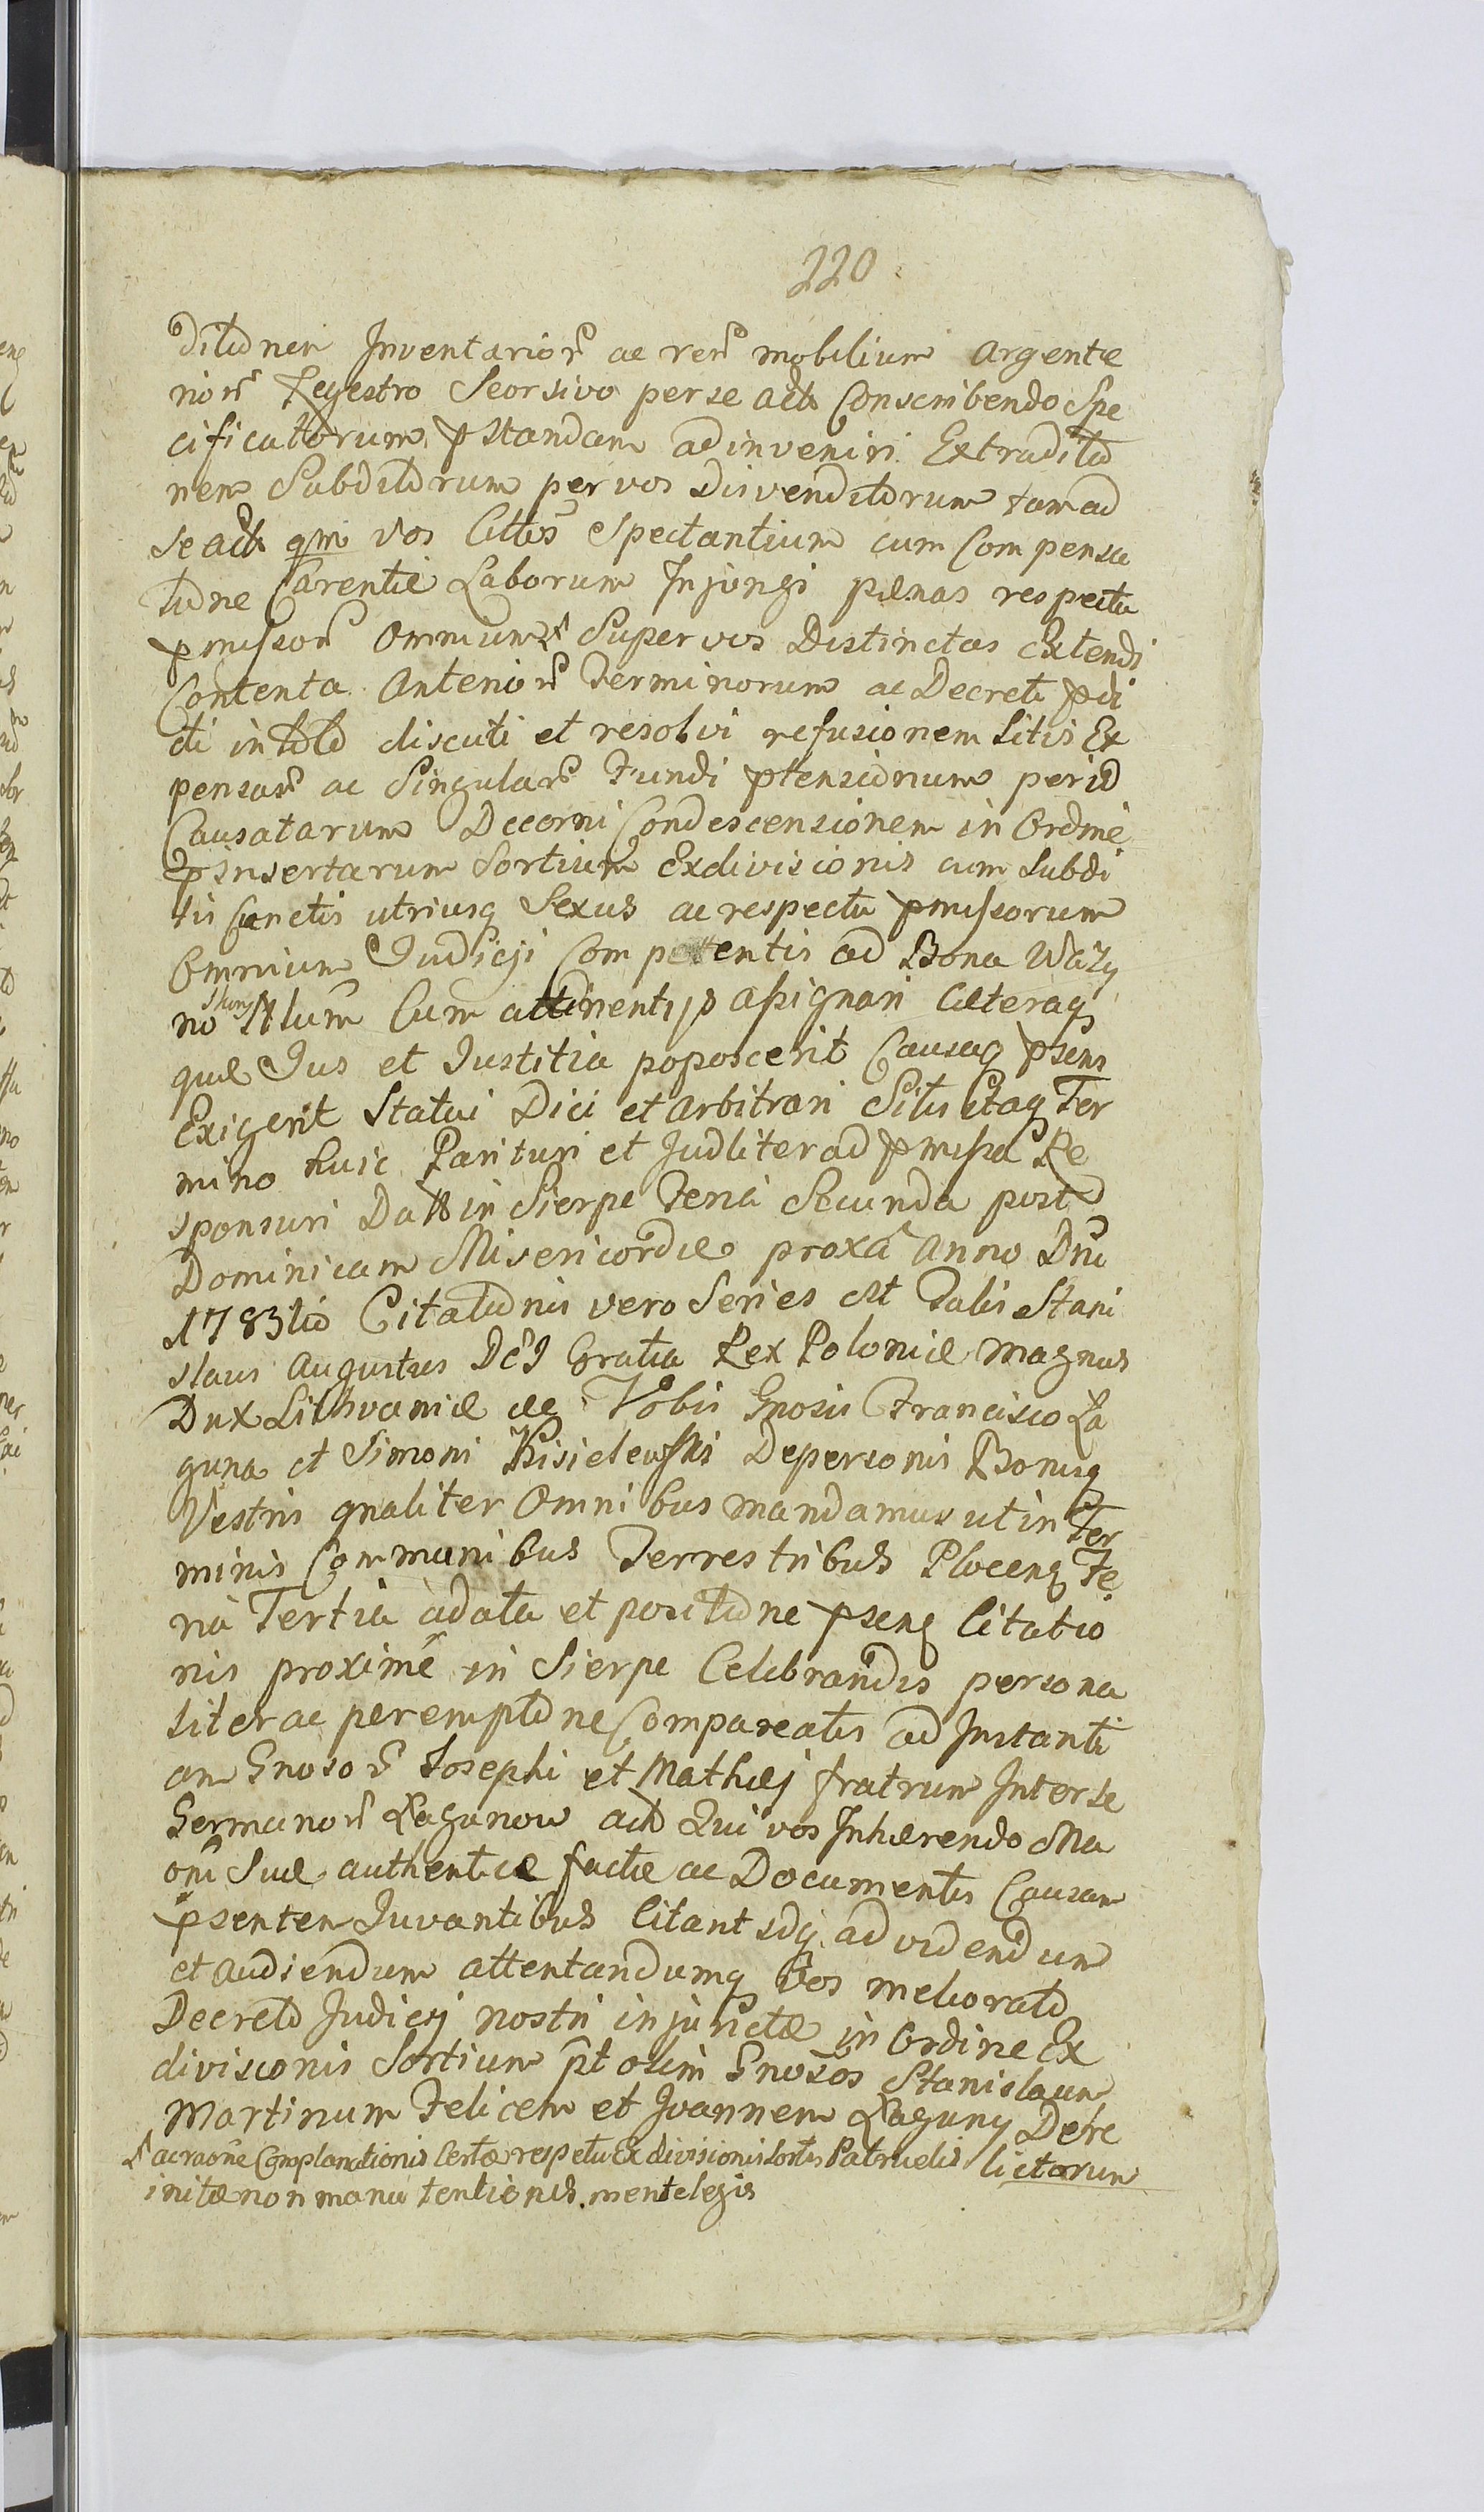 220
ditionem Inventarior̃ ac rer̃ mobilium argente
rior̃ Regestro Seorsivo per se act Conscribendo Spe
cificatorum pstandam adinveniri Extraditio
nem Subditorum per vos Disvenditorum tam ad
se act qm Vos Cittos Spectantium cum Compensa
tione Carentiæ Laborum Injungi pænas respectu
pmissor̃ Omnium Super vos Distinctas Extendi
Contenta Anterior̃ Terminorum ac Decreti pdi
cti in toto discuti et resolvi refusionem Litis Ex
pensar̃ ac Singular̃ Fundi ptensionum per id
Causatarum Decerni Condescensionem in Ordine
pinsertarum Sortium Exdivisionis cum Subdi
tis Cunctis utriusq Sexus ac respectu pmissorum
Omnium Judicij Competentis ad Bona Wazy
no Cum attinentijs assignari Cæteraq
quæ Jus et Justitia poposcerit Causaq psens
Exigerit Statui Dici et arbitrari Sitis Itaq Ter
mino huic Parituri et Judliter ad pmissa Re
sponsuri Datt in Sierpc Feria Secunda post
Dominicam Misericordiæ proxã Anno Dni
1783tio Citationis vero Series est Talis Stani
slaus Augustus DEI Gratia Rex Poloniæ Magnus
Dux Lithvaniæ etc Vobis Gnosis Francisco Ła
guna et Simoni Kisielewski De personis Bonisq
Vestris gnaliter Omnibus mandamus ut in Ter
minis Communibus Terrestribus Plocens Fe
ria Tertia a data et positione psens Citatio
nis proximẽ in Sierpc Celebrandis persona
liter ac peremptorie Compareatis ad Instanti
am Gnosor̃ Josephi et Mathæj fratrum Inter se
Germanor̃ Łagunow act Qui vos Inhærendo Ma
oni Suæ authenticæ factæ ac Documentis Causam
psentem Juvantibus Citant idq ad videndum
et audiendum attentandumq Vos meliorato
Decreto Judicij nostri injunctæ in Ordine Ex
divisionis Sortium pt olim Gnosos Stanislaum
Martinum Felicem et Joannem Łaguny Dere
lictarum
ac raone Complanationis Certæ respectu Exdivisionis Sortis Patruelis
initæ non manutentionis mente legis